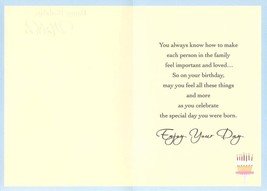 You always know how to make
each person in the family
feel important and loved...
So on your birthday,
may you feel all these things
and more
as you celebrate
the special day you were born.
Enjoy Your Day